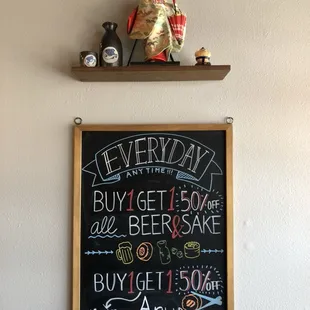 EVERYDAY
ANYTIME!!!
BUY 1 GET 1 50% OFF
all BEER & SAKE
BUY 1 GET 1 50% OFF